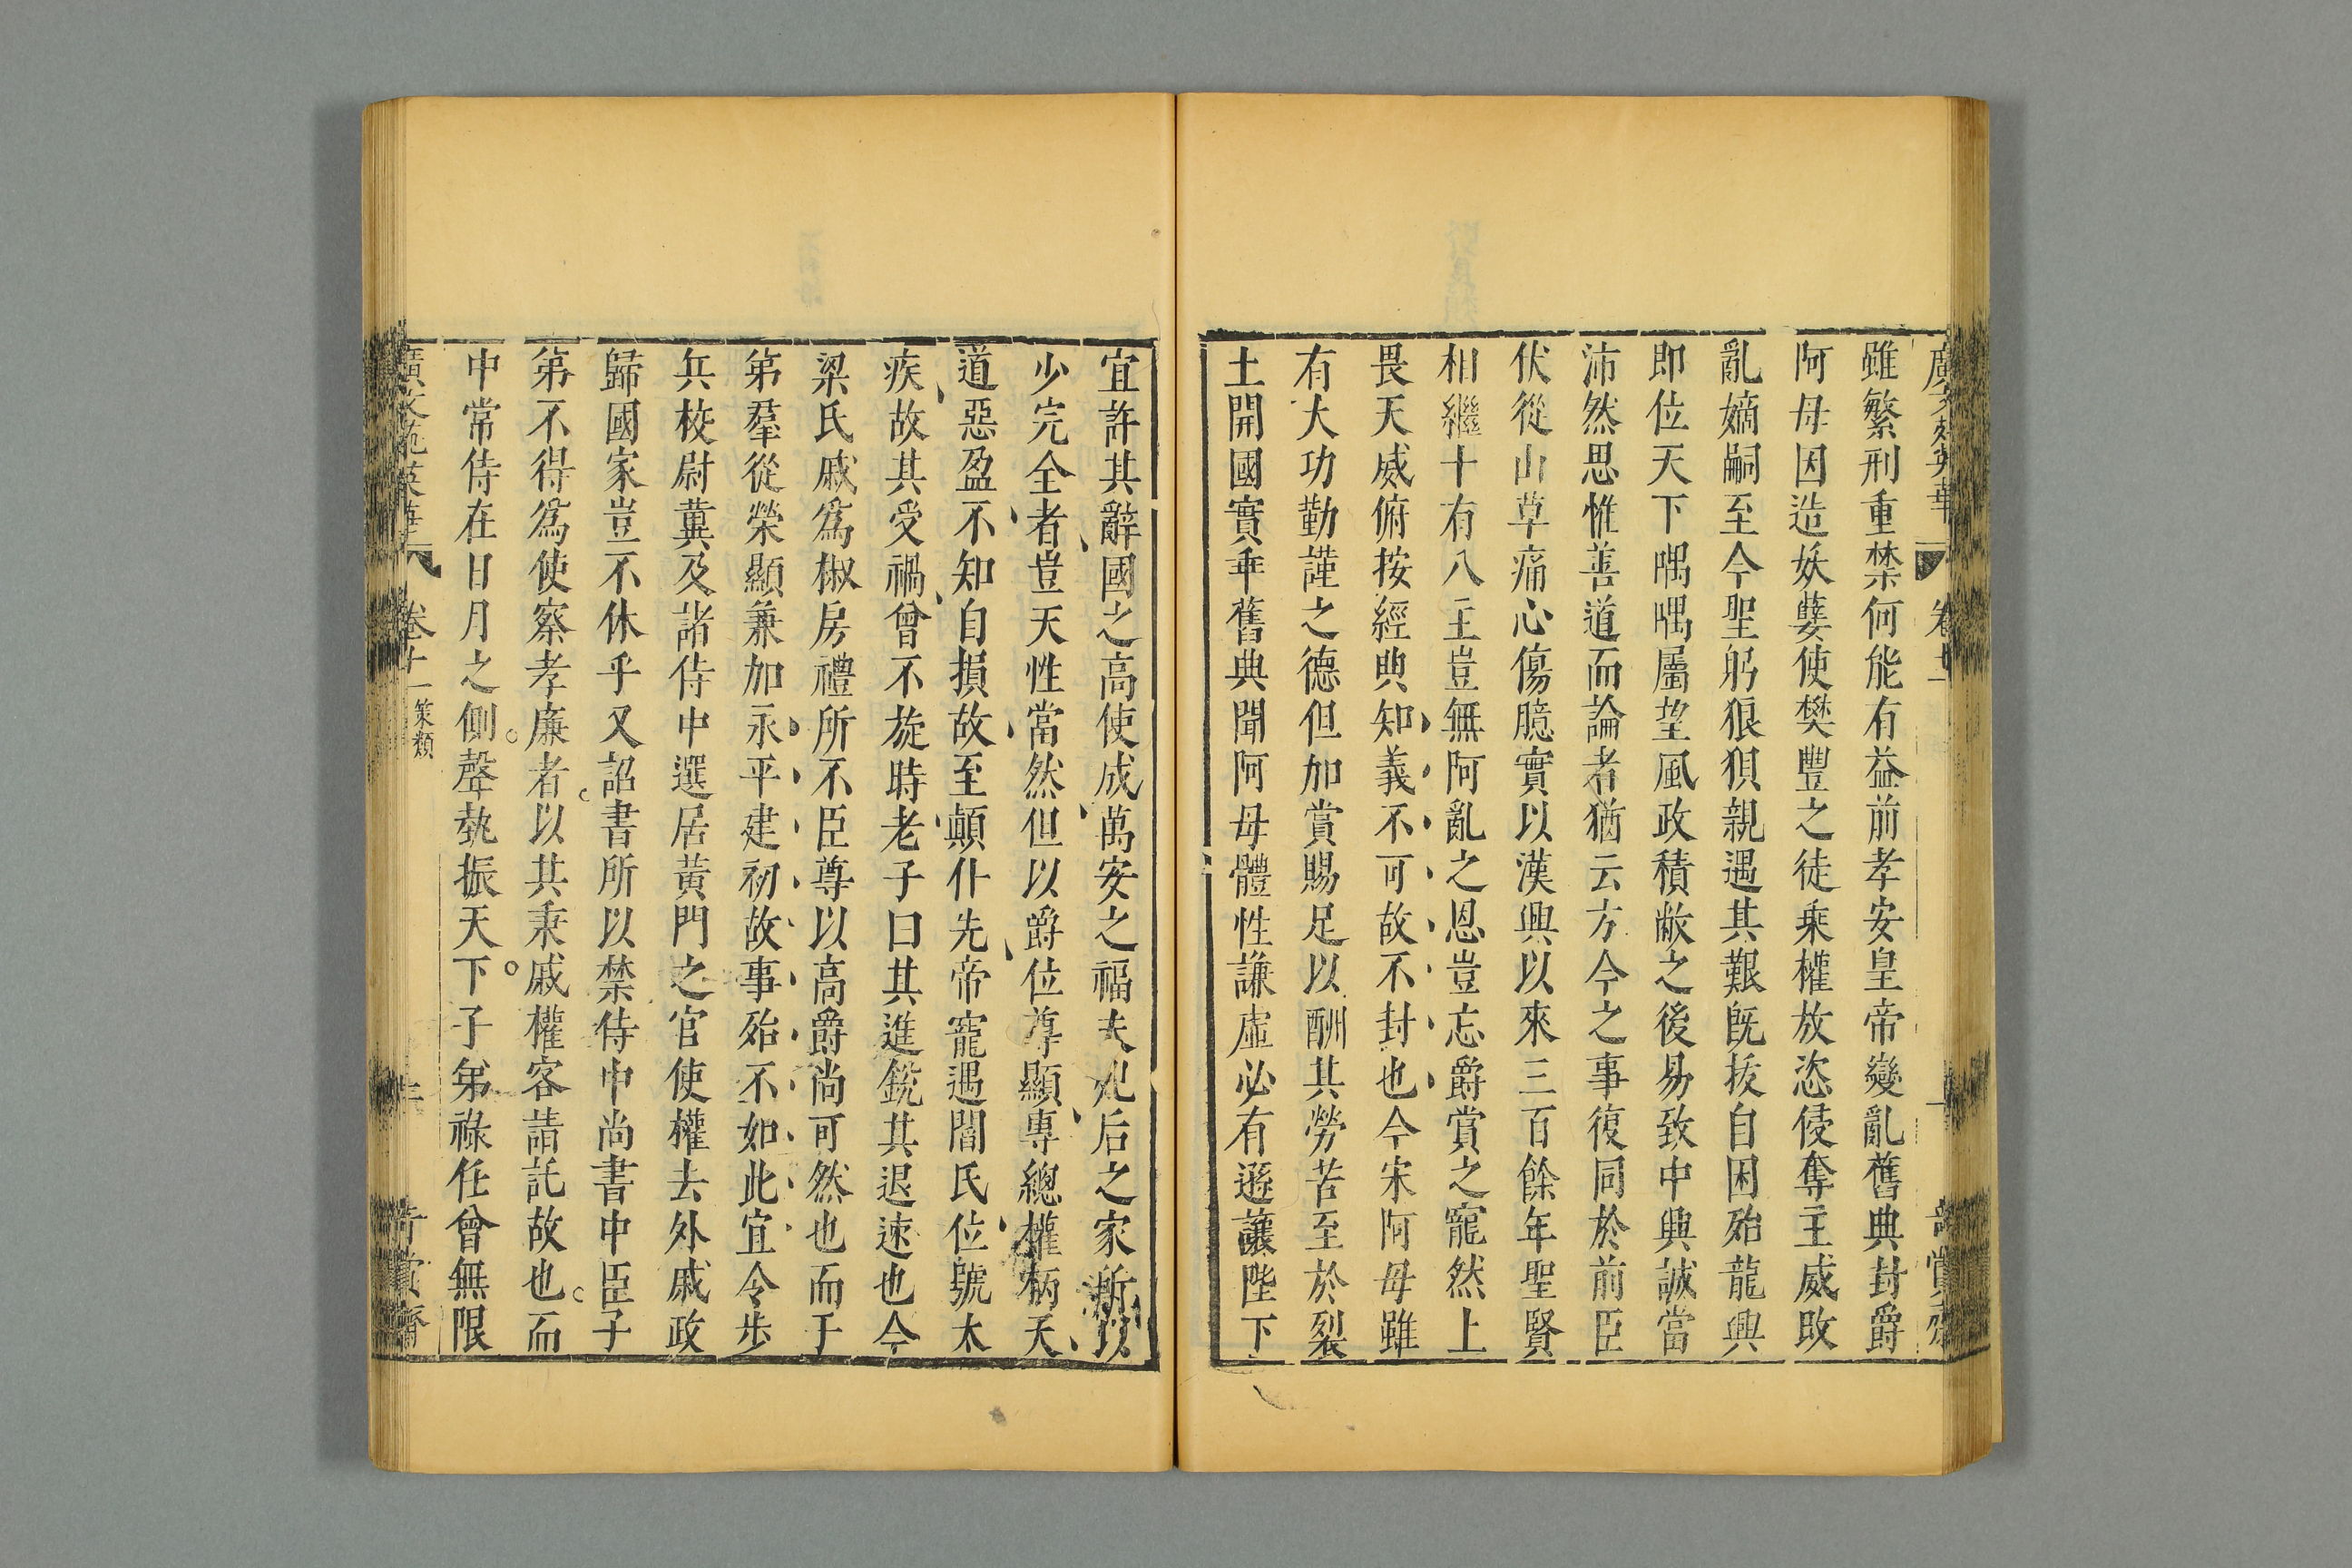 廣文苑英華 卷十一
雖繁刑重禁何能有益前孝安皇帝變亂舊典封爵
阿母因造妖孽使樊豐之徒乘權放恣侵奪主威改
亂嫡嗣至今聖躬狼狽親遇其艱旣拔自困殆龍興
即位天下喁喁屬望風政積敝之後易致中興誠當
沛然思惟善道而論者猶云方今之事復同於前臣
伏從山草痛心傷臆實以漢興以來三百餘年聖賢
相繼十有八主豈無阿亂之恩豈忘爵賞之寵然上
畏天威俯按經典知義不可故不封也今宋阿母雖
有大功勤謹之德但加賞賜足以酬其勞苦至於裂
土開國實乖舊典聞阿母體性謙虛必有遜讓陛下
宜許其辭國之高使成萬安之福夫妃后之家所以
少完全者豈天性當然但以爵位尊顯專總權柄天
道惡盈不知自損故至顛仆先帝寵遇閻氏位號太
疾故其受禍曾不旋時老子曰其進銳其退速也今
梁氏戚爲椒房禮所不臣尊以高爵尚可然也而子
第羣從榮顯兼加永平建初故事殆不如此宜令步
兵校尉冀及諸侍中選居黃門之官使權去外戚政
歸國家豈不休乎又詔書所以禁侍中尚書中臣子
第不得爲使察孝廉者以其秉戚權容請託故也而
中常侍在日月之側聲埶振天下子弟祿任曾無限
廣文苑英華 卷十一 策類